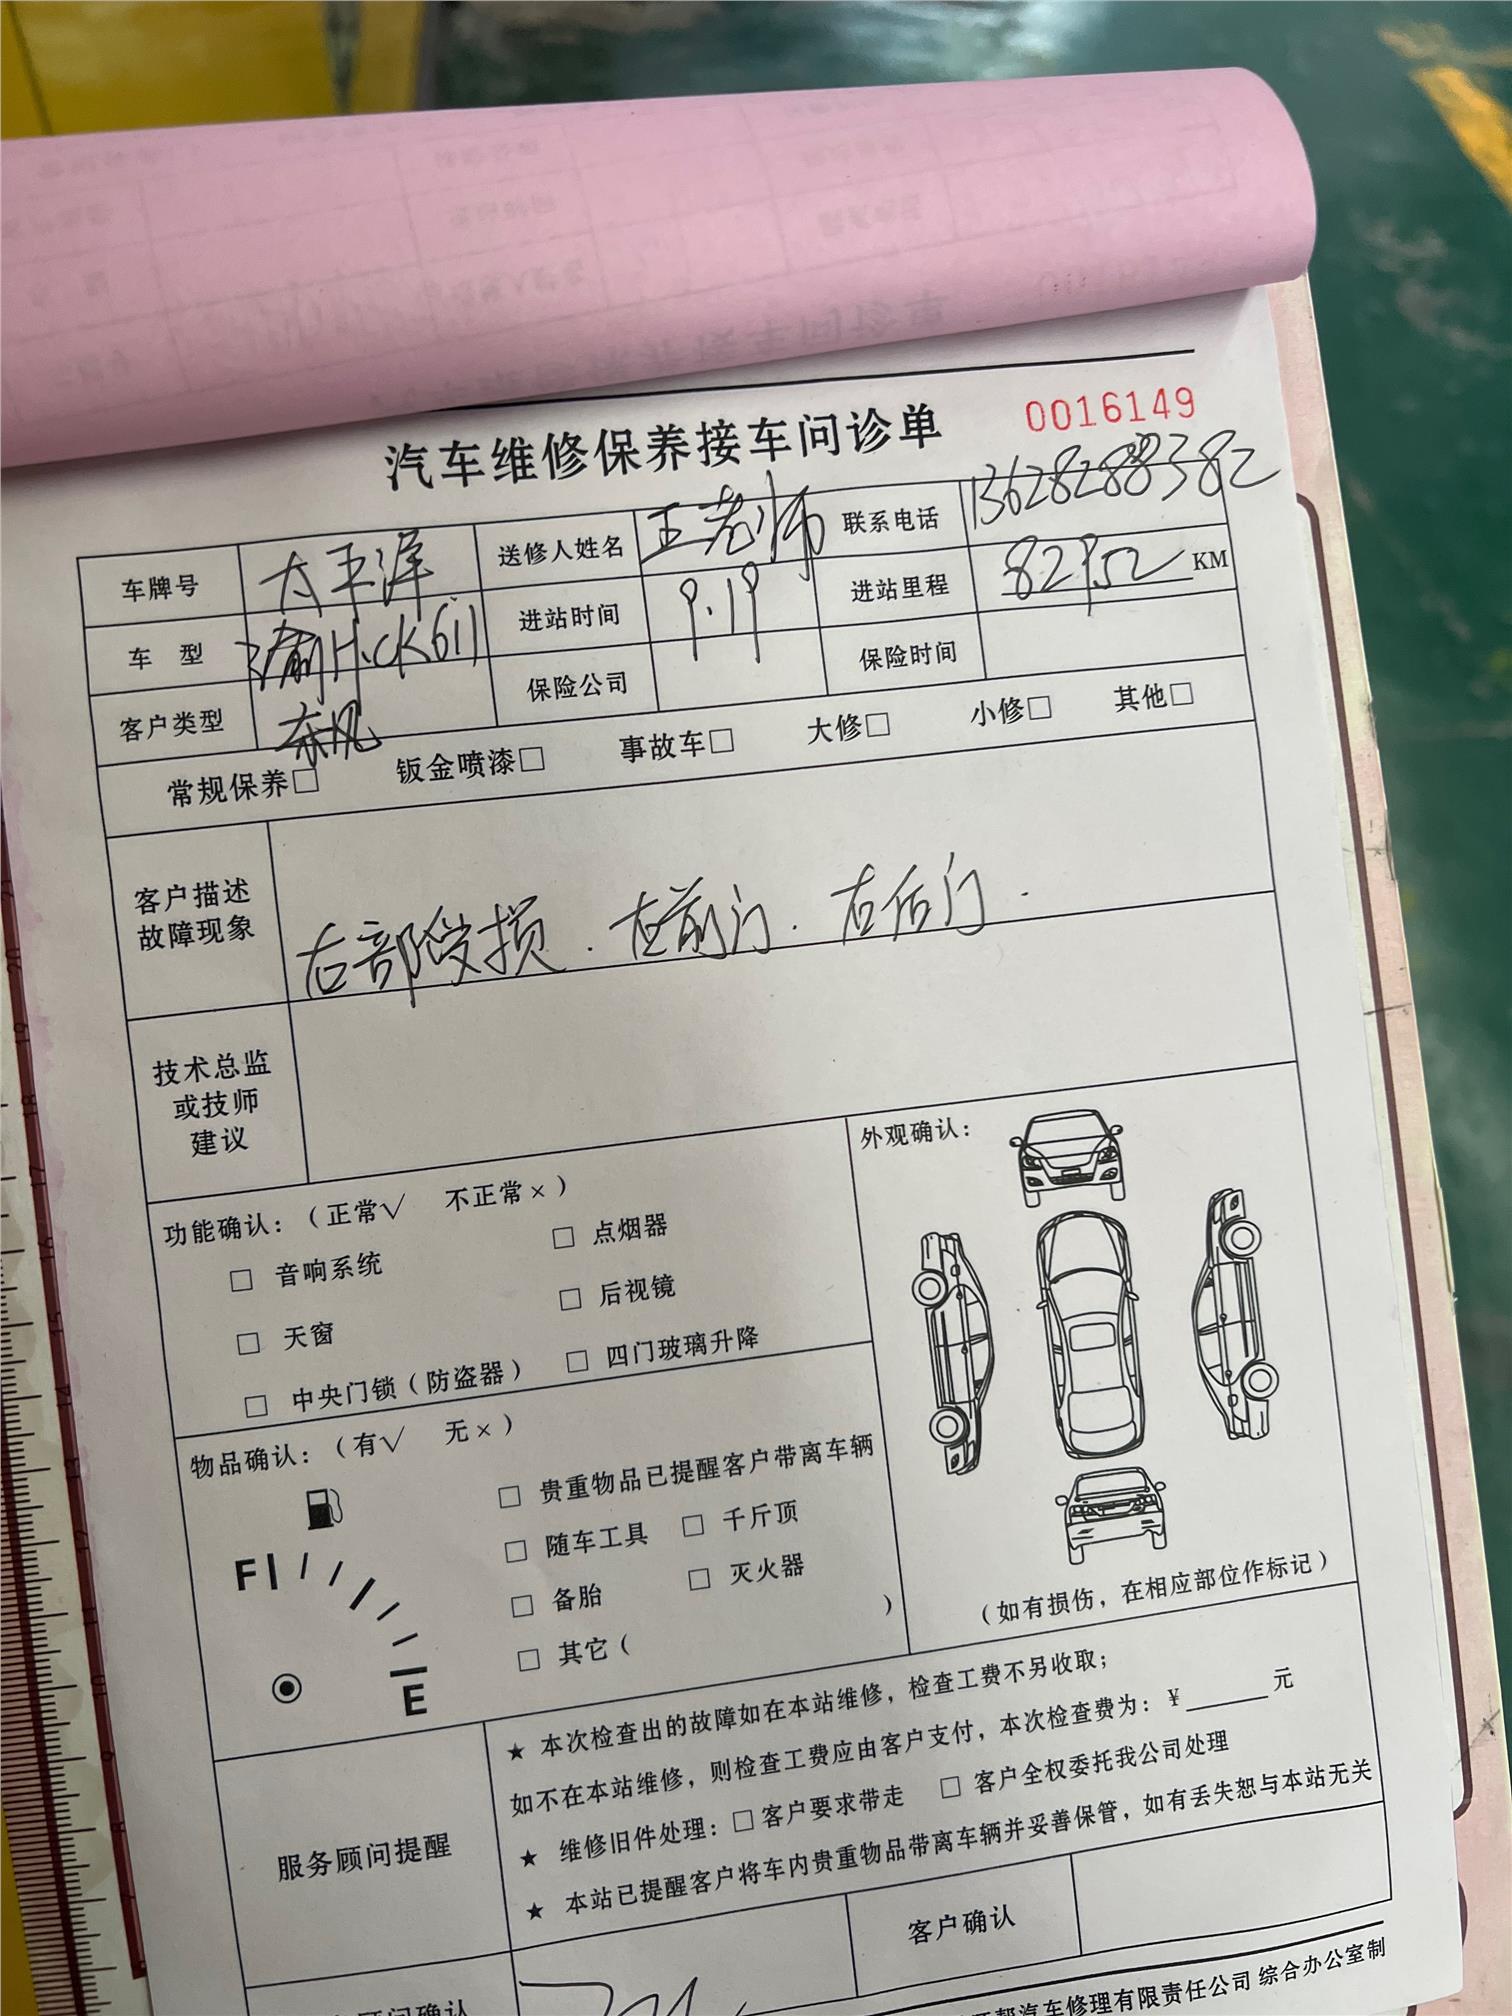 汽车维修保养接车问诊单 0016149
车牌号 太平洋 送修人姓名 王老师 联系电话 13628288382
车 型 渝H·CK611 进站时间 9.19 进站里程 82952 KM
客户类型 东风 保险公司 保险时间
常规保养□ 钣金喷漆□ 事故车□ 大修□ 小修□ 其他□
客户描述
故障现象
右部受损.右前门.右后门.
技术总监
或技师
建议
功能确认:(正常√ 不正常×)
□ 音响系统 □ 点烟器
□ 天窗 □ 后视镜
□ 中央门锁(防盗器) □ 四门玻璃升降
外观确认:
(如有损伤,在相应部位作标记)
物品确认:(有√ 无×)
□ 贵重物品已提醒客户带离车辆
□ 随车工具 □ 千斤顶
□ 备胎 □ 灭火器
□ 其它( )
F
E
服务顾问提醒
★ 本次检查出的故障如在本站维修,检查工费不另收取;
如不在本站维修,则检查工费应由客户支付,本次检查费为:¥______元
★ 维修旧件处理:□客户要求带走 □ 客户全权委托我公司处理
★ 本站已提醒客户将车内贵重物品带离车辆并妥善保管,如有丢失恕与本站无关
顾问确认 客户确认
帮汽车修理有限责任公司 综合办公室制